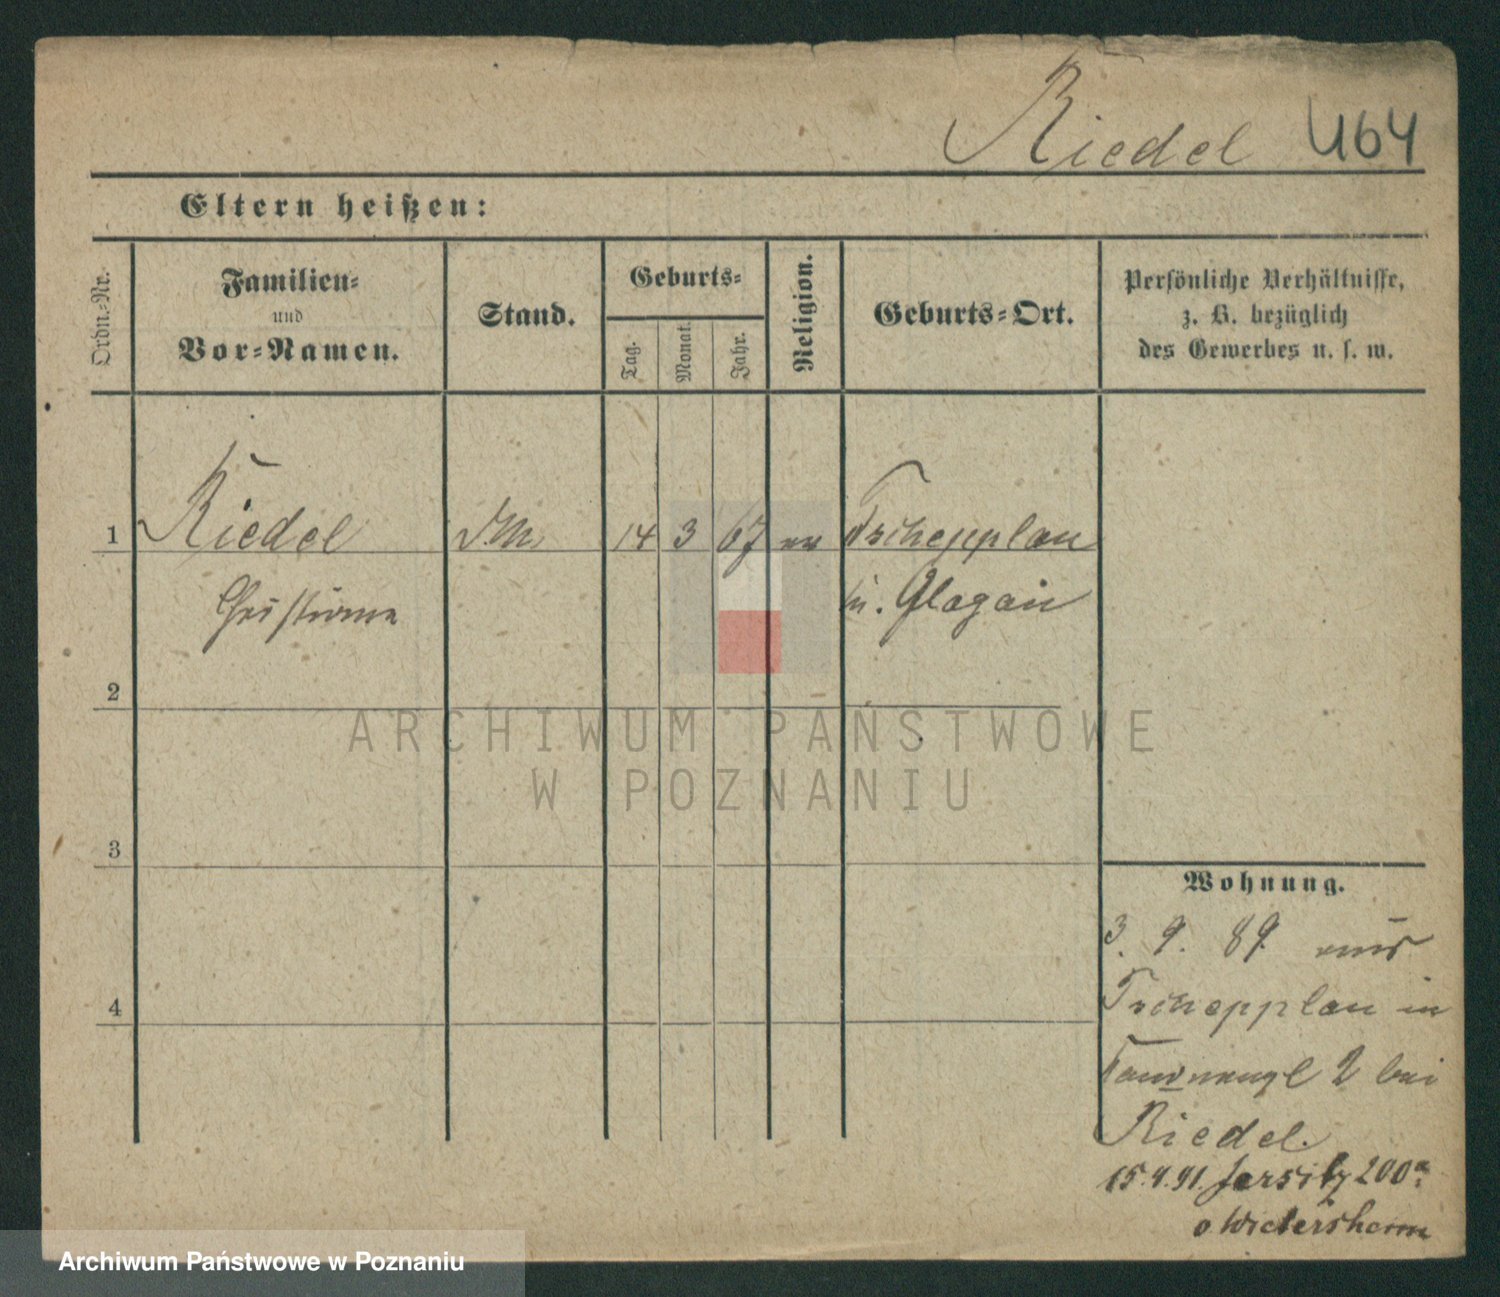 Riedel 464
Eltern heißen:
Ordn.-Nr.
Familien-
und
Vor-Namen.
Stand.
Geburts-
Tag.
Monat.
Jahr.
Religion.
Geburts-Ort.
Persönliche Verhältnisse,
z. B. bezüglich
des Gewerbes u. s. w.
1 Riedel 14 3 67 ev Tschepplau
Christiane Glogau
2
3
4
Wohnung.
3. 9. 89 aus
Tschepplau in
2 bei
Riedel.
15.4.91. Jersitz 200a
v Wietersheim
ARCHIWUM PAŃSTWOWE
W POZNANIU
Archiwum Państwowe w Poznaniu